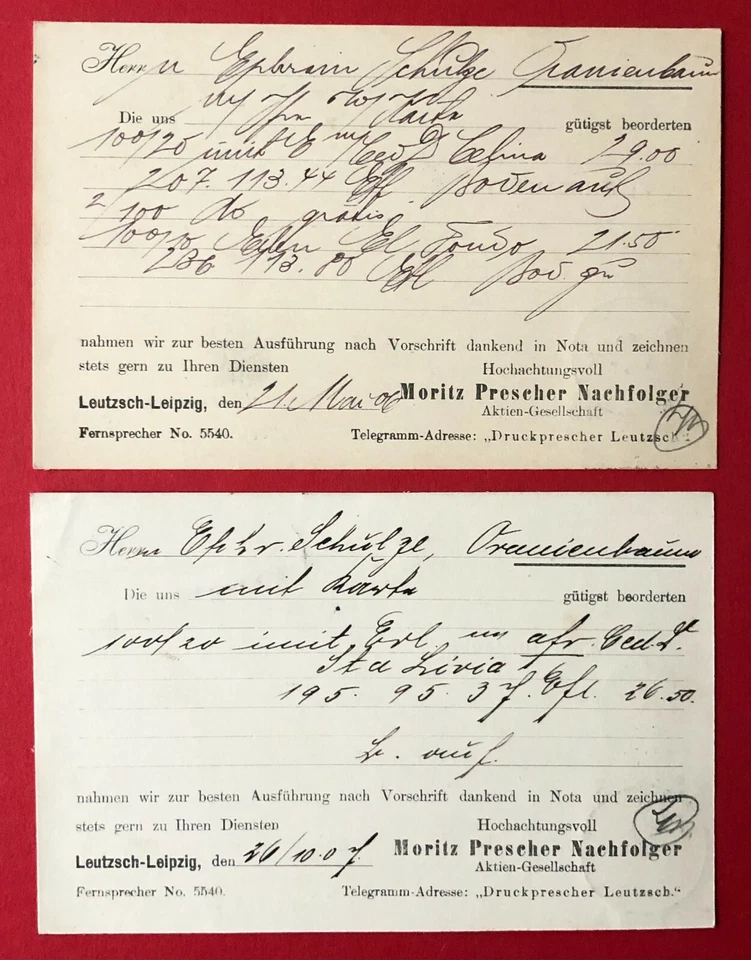 Herrn Ephraim Schulze Oranienbaum
Die uns Karte gütigst beorderten
100/20 imit Ced Celina 29.00
207. 113. 44 Boden auf
2/100 do gratis
100/10 Erlen El Fondo 21.50
236 113. 80 Bod. zu
nahmen wir zur besten Ausführung nach Vorschrift dankend in Nota und zeichnen
stets gern zu Ihren Diensten Hochachtungsvoll
Leutzsch-Leipzig, den 21. Mai 06 Moritz Prescher Nachfolger
Aktien-Gesellschaft
Fernsprecher No. 5540. Telegramm-Adresse: „Druckprescher Leutzsch."
Herrn Ephr. Schulze, Oranienbaum
Die uns mit Karte gütigst beorderten
100/20 imit. Erl. afr. Ced.
Sta Livia
195. 95. 37. 26.50.
auf.
nahmen wir zur besten Ausführung nach Vorschrift dankend in Nota und zeichnen
stets gern zu Ihren Diensten Hochachtungsvoll
Leutzsch-Leipzig, den 26/10.07. Moritz Prescher Nachfolger
Aktien-Gesellschaft
Fernsprecher No. 5540. Telegramm-Adresse: „Druckprescher Leutzsch."